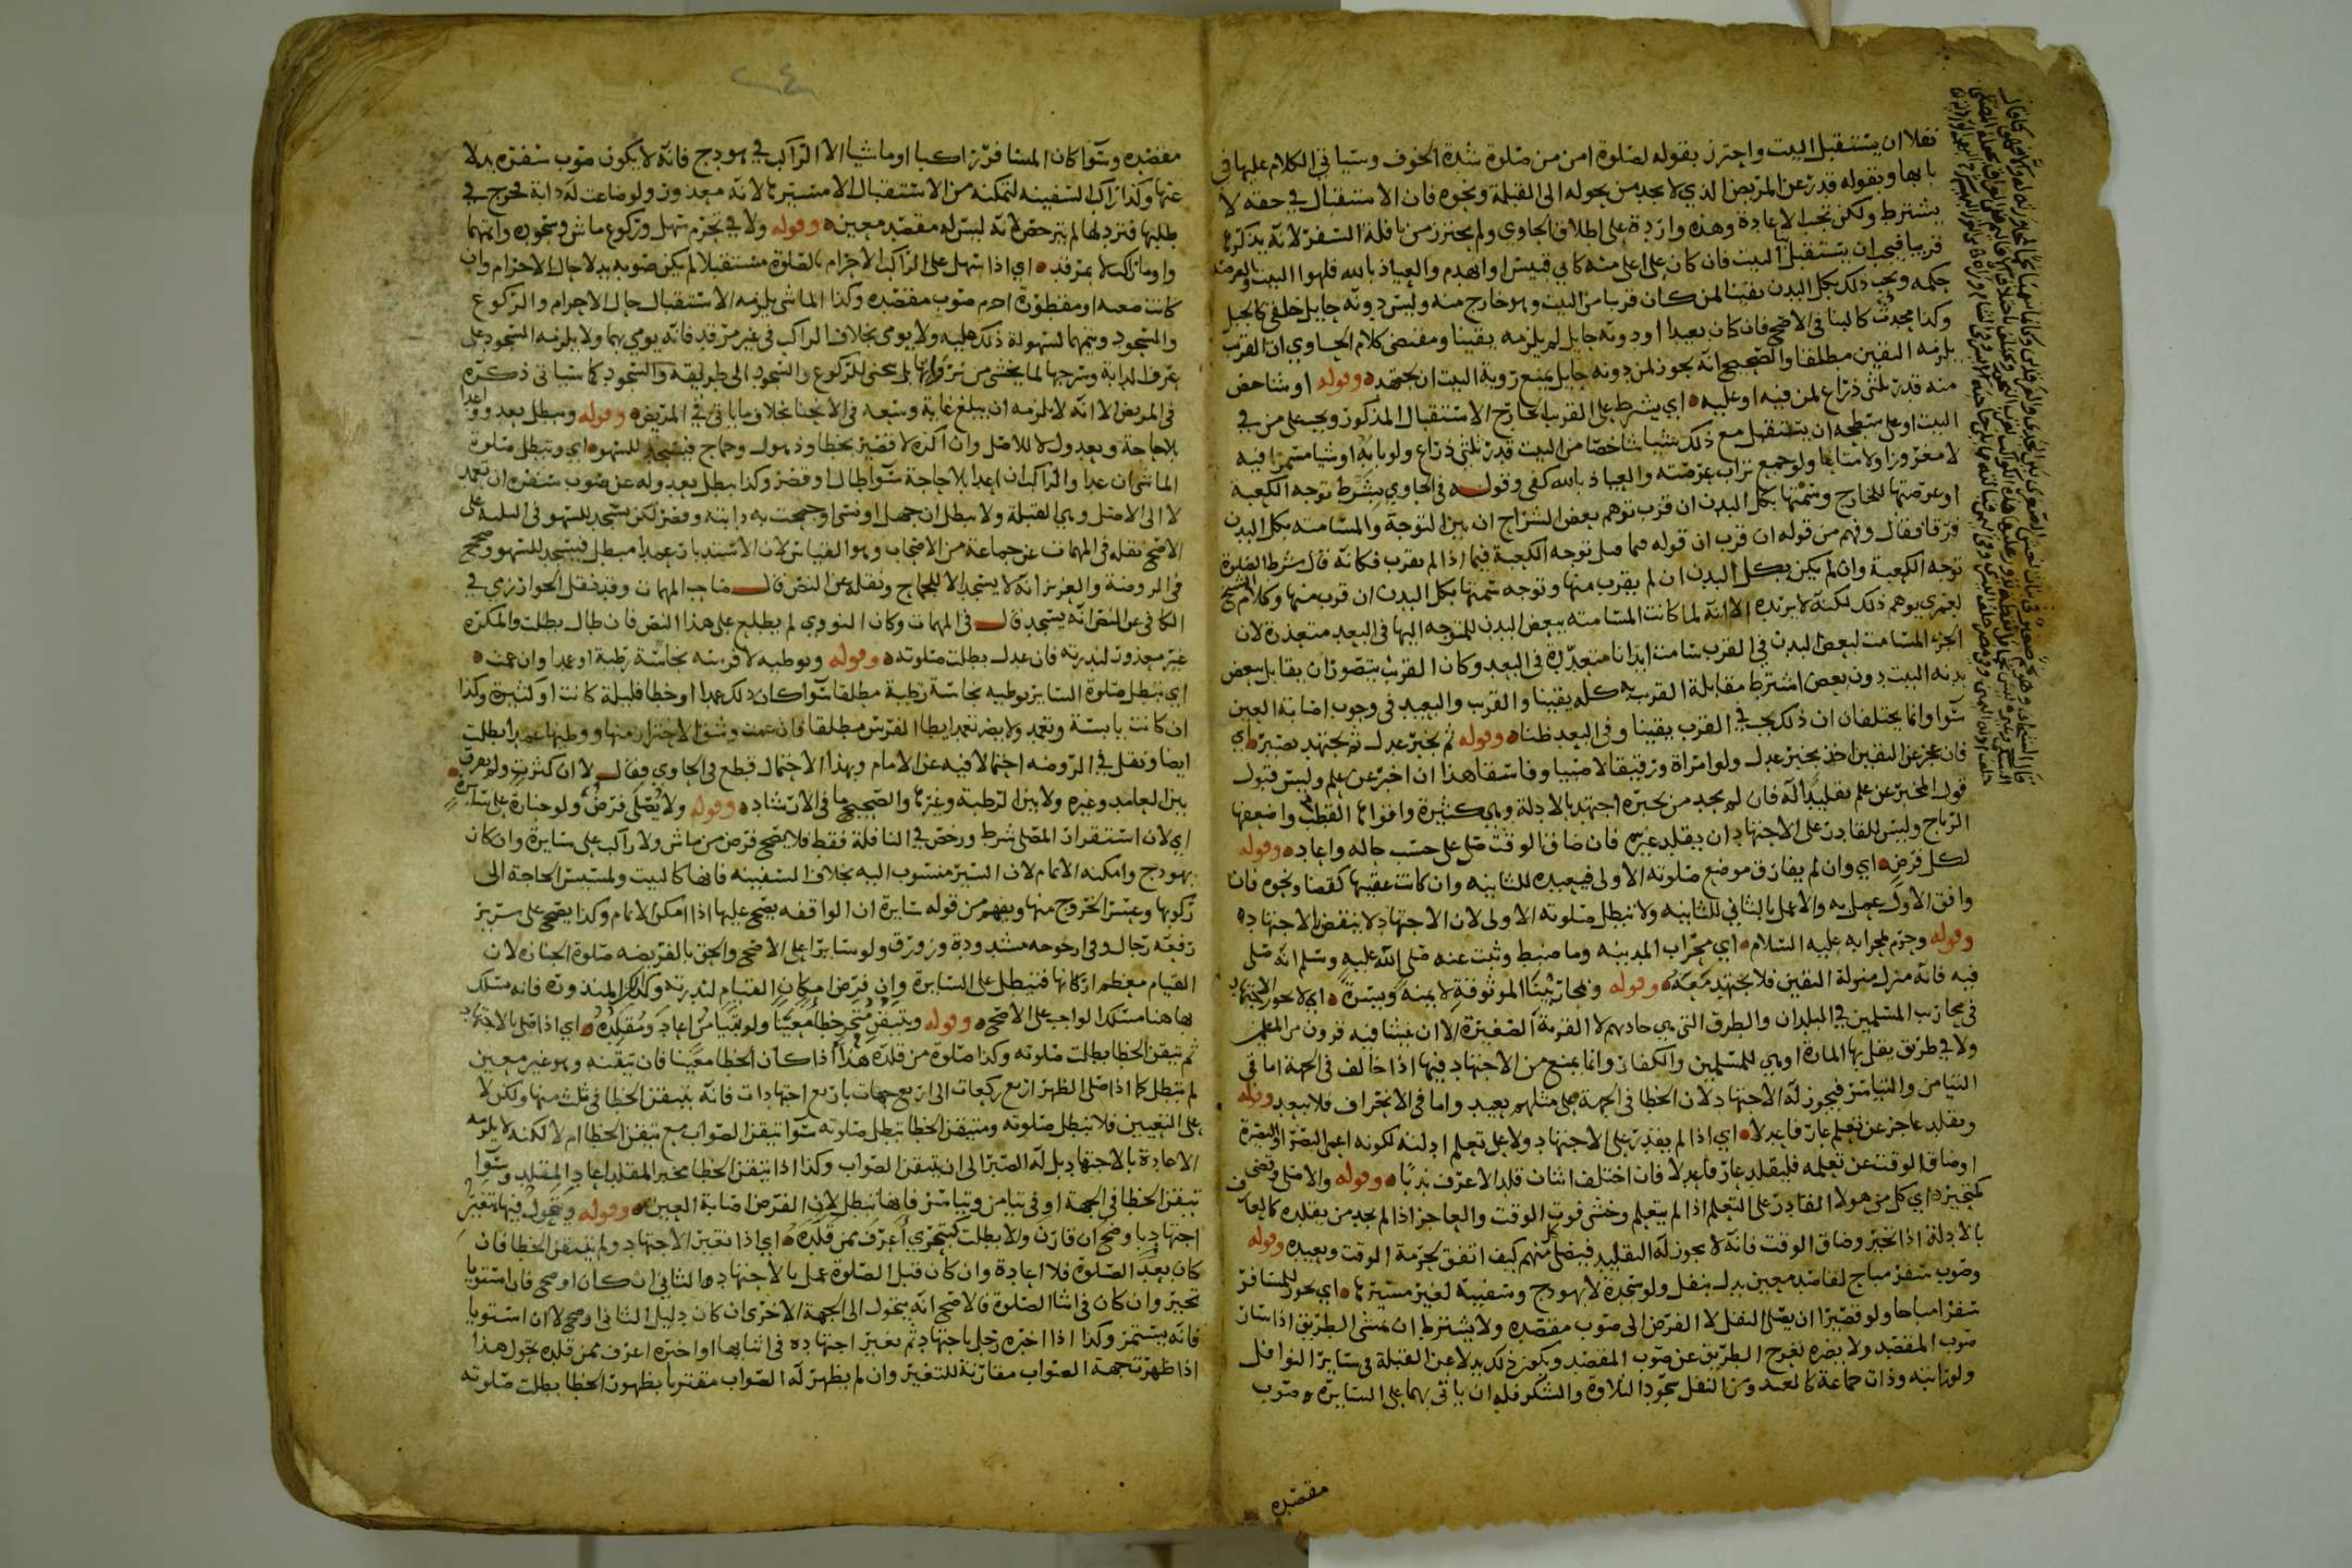 نفلا ان يستقبل البيت واحترز بقوله لصلوة امن من صلوة شدة الخوف وسياتي الكلام عليها في
بابها وبقوله قدر عن المريض الذي لا يجد من يحوله الى القبلة ونحوه فان الاستقبال في حقه لا
يشترط ولكن تجب الاعادة وهذه واردة على اطلاق الحاوي ولم يحترز من نافلة السفر لانه يذكرها
قريبا فيجب ان يستقبل البيت فان كان على اعلى منه كابي قبيس او انهدم والعياذ بالله فلهوا البيت
حكمه ويجب ذلك بكل البدن يقينا لمن كان قريبا من البيت وهو خارج منه وليس دونه حايل خلقي كالجبل
وكذا محدث كالبنا في الاصح فان كان بعيدا او دونه حايل لم يلزمه يقينا ومقتضى كلام الحاوي ان القرب
يلزمه اليقين مطلقا والصحيح انه يجوز لمن دونه حايل يمنع روية البيت ان يجتهد وقوله او شاخص
منه قدر ثلثي ذراع لمن فيه او عليه اي يشترط على القرب الخارج الاستقبال المذكور ويجب على من في
البيت او على سطحه ان يستقبل مع ذلك شيا شاخصا من البيت قدر ثلثي ذراع ولو بابه او شيا مسمرا فيه
لا مغروزا ولا متاعا ولو جمع تراب عرصته والعياذ بالله كفى وقوله في الحاوي بشرط توجه الكعبة
او عرصتها للخارج وسمتها بكل البدن ان قرب توهم بعض الشراح ان بين التوجه والمسامته بكل البدن
فرقا فقال وفهم من قوله ان قرب ان قوله فيما قبل توجه الكعبة فيما اذا لم يقرب فكانه قال شرط الصلوة
توجه الكعبة وان لم يكن بكل البدن ان لم يقرب منها وتوجه سمتها بكل البدن ان قرب منها وكلام الشيخ
لعمري يوهم ذلك لكنه لا يريده الا انه لما كانت المسامته ببعض البدن للمتوجه اليها في البعد متعذرة لان
الجزء المسامت لبعض البدن في القرب سامت ابدانا متعددة في البعد وكان القرب يتصور ان يقابل ببعض
بدنه البيت دون بعض اشترط مقابلة القرب به كله يقينا والقرب والبعيد في وجوب اصابة العين
سوا وانما يختلفان ان ذلك يجب في القرب يقينا وفي البعد ظنا وقوله ثم بخبر عدل ثم يجتهد بصير اي
فان عجز عن اليقين اخذ بخبر عدل ولو امراة ورقيقا لا صبيا وفاسقا هذا ان اخبر عن علم وليس قبول
قول المخبر عن علم تقليدا له فان لم يجد من يخبره اجتهد بالادلة وهي كثيرة واقواها القطب واضعفها
الرياح وليس للقادر على الاجتهاد ان يقلد غيره فان ضاق الوقت صلى على حسب حاله واعاد وقوله
لكل فرض اي وان لم يفارق موضع صلوته الاولى فيعيده للثانيه وان كانت عقيبها كقضا ونحوه فان
وافق الاول عمل به والا عمل بالثاني للثانيه ولا تبطل صلوته الاولى لان الاجتهاد لا ينقض الاجتهاد
وقوله وحرم لمحرابه عليه السلام اي محراب المدينه وما ضبط وثبت عنه صلى الله عليه وسلم انه صلى
فيه فانه منزل منزلة اليقين فلا يجتهد معه وقوله ومحاريبنا الموثوقة لا يمنة ويسرة اي لا يجوز الاجتهاد
في محاريب المسلمين في البلدان والطرق التي هي جادهم لا القرية الصغيرة الا ان نشا فيه قرون من المسلمين
ولا في طريق يقل بها المارة او هي للمسلمين والكفار وانما يمنع من الاجتهاد فيها اذا خالف في الجهة اما في
التيامن والتياسر فيجوز له الاجتهاد لان الخطا في الجهة على مثلهم بعيد واما في الانحراف فلا يبعد وقوله
وتقليد عاجز عن تعلم عارفا عدلا اي اذا لم يقدر على الاجتهاد ولا على تعلم ادلته لكونه اعمى البصر او البصيرة
او ضاق الوقت عن تعلمه فليقلد عارفا عدلا فان اختلف اثنان قلد الاعرف ندبا وقوله والا صلى وقضى
كمتحير اي كل من هولا القادر على التعلم اذا لم يتعلم وخشى فوت الوقت والعاجز اذا لم يجد من يقلده كالعارف
بالادلة اذا تحير وضاق الوقت فانه لا يجوز له التقليد فيصلي كل منهم كيف اتفق لحرمة الوقت ويعيده وقوله
وصوب سفر مباح لقاصد معين بدل بنفل ولو سجدة لا بهودج وسفينة لغير مسيرها اي يجوز للمسافر
سفرا مباحا ولو قصيرا ان يصلي النفل لا الفرض الى صوب مقصده ولا يشترط ان يمشي الطريق اذا سار
صوب المقصد ولا يضره تعرج الطريق عن صوب المقصد ويكون ذلك بدلا عن القبلة في ساير النوافل
ولو راتبه وذات جماعة كالعيد ومن النفل سجود التلاوة والشكر فله ان ياتي بهما على السايرة صوب
مقصده
مقصده وسوا كان المسافر راكبا او ماشيا الا الراكب في هودج فانه لا يكون صوب سفره بدلا
عنها وكذا راكب السفينه لتمكنه من الاستقبال الا مسيرها لانه معذور ولو ضاعت له دابة فخرج في
طلبها فتردد لها لم يترخص لانه ليس له مقصد معين وقوله ولا في تحرم سهل وركوع ماش وسجوده واتمهما
واوما راكب لا بمرقد اي اذا سهل على الراكب الاحرام بالصلوة مستقبلا لم يكن صوبه بدلا حال الاحرام وان
كانت صعبه او مقطورة احرم صوب مقصده وكذا الماشي يلزمه الاستقبال حال الاحرام والركوع
والسجود ويتمهما لسهولة ذلك عليه ولا يومي بخلاف الراكب في غير مرقد فانه يومي بهما ولا يلزمه السجود على
عرف الدابة وسرجها لما يخشى من نزواتها بل ينحني للركوع والسجود الى طريقه والسجود كما سياتي ذكره
في المريض الا انه لا يلزمه ان يبلغ غاية وسعه في الانحنا بخلاف ما ياتي في المريض وقوله وتبطل بعدو واعدا
بلا حاجة وبعدول لا للاصل وان اكره لا قصير بخطا وذهول وجماح فيسجد للسهو اي وتبطل صلوة
الماشي ان عدا والراكب ان اعدا بلا حاجة سوا طال او قصر وكذا يبطل بعدوله عن صوب سفره ان تعمد
لا الى الاصل وهي القبلة ولا يبطل ان جهل او نسي او جمحت به دابته وقصر لكن يسجد للسهو في الثلثة على
الاصح نقله في المهمات عن جماعة من الاصحاب وهو القياس لان الاستدبار عمدا مبطل فيسجد للسهو وصحح
في الروضة والعزيز انه لا يسجد الا للجماح ونقله عن النص قال صاحب المهمات وقد نقل الخوارزمي في
الكافي عن النص انه يسجد قال في المهمات وكان النووي لم يطلع على هذا النص فان طال بطلت والمكره
غير معذور لندرته فان عدل بطلت صلوته وقوله وبوطيه لا فرسه نجاسة رطبة او عمدا وان عمت
اي تبطل صلوة الساير بوطيه نجاسة رطبة مطلقا سوا كان ذلك عمدا او خطا قليلة كانت او كثيرة وكذا
ان كانت يابسة وتعمد ولا يضر تعمد ايطا الفرس مطلقا فان عمت وشق الاحتراز منها ووطيها عمدا بطلت
ايضا ونقل في الروضه احتمالا فيه عن الامام وبهذا الاحتمال قطع في الحاوي وقال لا ان كثرت ولم يفرق
بين العامد وغيره ولا بين الرطبة وغيرها والصحيح ما في الارشاد وقوله ولا يصلى فرض ولو جنازة على سايرة
اي لان استقرار المصلي شرط ورخص في النافلة فقط فلا يصح فرض من ماش ولا راكب على سايرة وان كان
بهودج وامكنه الاتمام لان السير منسوب اليه بخلاف السفينه فانها كالبيت ولمسيس الحاجة الى
ركوبها وعسر الخروج منها ويفهم من قوله سايرة ان الواقفه يصح عليها اذا امكن الاتمام وكذا يصح على سرير
رفعه رجال وفي ارجوحه مشدودة وزورق ولو سايرا على الاصح والحق بالفريضه صلوة الجنازه لان
القيام معظم اركانها فتبطل على السايرة وان فرض امكان القيام لندرته وكذا المنذورة فانه مسلك
بها هنا مسلك الواجب على الاصح وقوله وبتيقن متحر خطا معينا ولو بتيامن اعاد ومقلده اي اذا صلى بالاجتهاد
ثم تيقن الخطا بطلت صلوته وكذا صلوة من قلده هذا اذا كان الخطا معينا فان تيقنه وهو غير معين
لم تبطل كما اذا صلى الظهر اربع ركعات الى اربع جهات باربع اجتهادات فانه يتيقن الخطا في ثلث منها ولكن لا
على التعيين فلا تبطل صلوته ومتيقن الخطا تبطل صلوته سوا تيقن الصواب مع تيقن الخطا ام لا لكنه لا يلزمه
الاعادة بالاجتهاد بل له الصبر الى ان يتيقن الصواب وكذا اذا تيقن الخطا مخبر المقلد اعاد المقلد وسوا
تيقن الخطا في الجهة او في تيامن وتياسر فانها تبطل لان الفرض اصابة العين وقوله وتحول فيها بتغير
اجتهاد باوضح ان قارن والا بطلت كتحري اعرف ممن قلده اي اذا تغير الاجتهاد ولم يتيقن الخطا فان
كان بعد الصلوة فلا اعادة وان كان قبل الصلوة عمل بالاجتهاد الثاني ان كان اوضح فان استويا
تخير وان كان في اثنا الصلوة فالاصح انه يتحول الى الجهة الاخرى ان كان دليل الثاني اوضح لا ان استويا
فانه يستمر وكذا اذا اخبره رجل باجتهاد ثم تغير اجتهاده في اثنايها او اخبره اعرف ممن قلده تحول هذا
اذا ظهرت جهة الصواب مقارنة للتغير وان لم يظهر له الصواب مقترنا بظهور الخطا بطلت صلوته